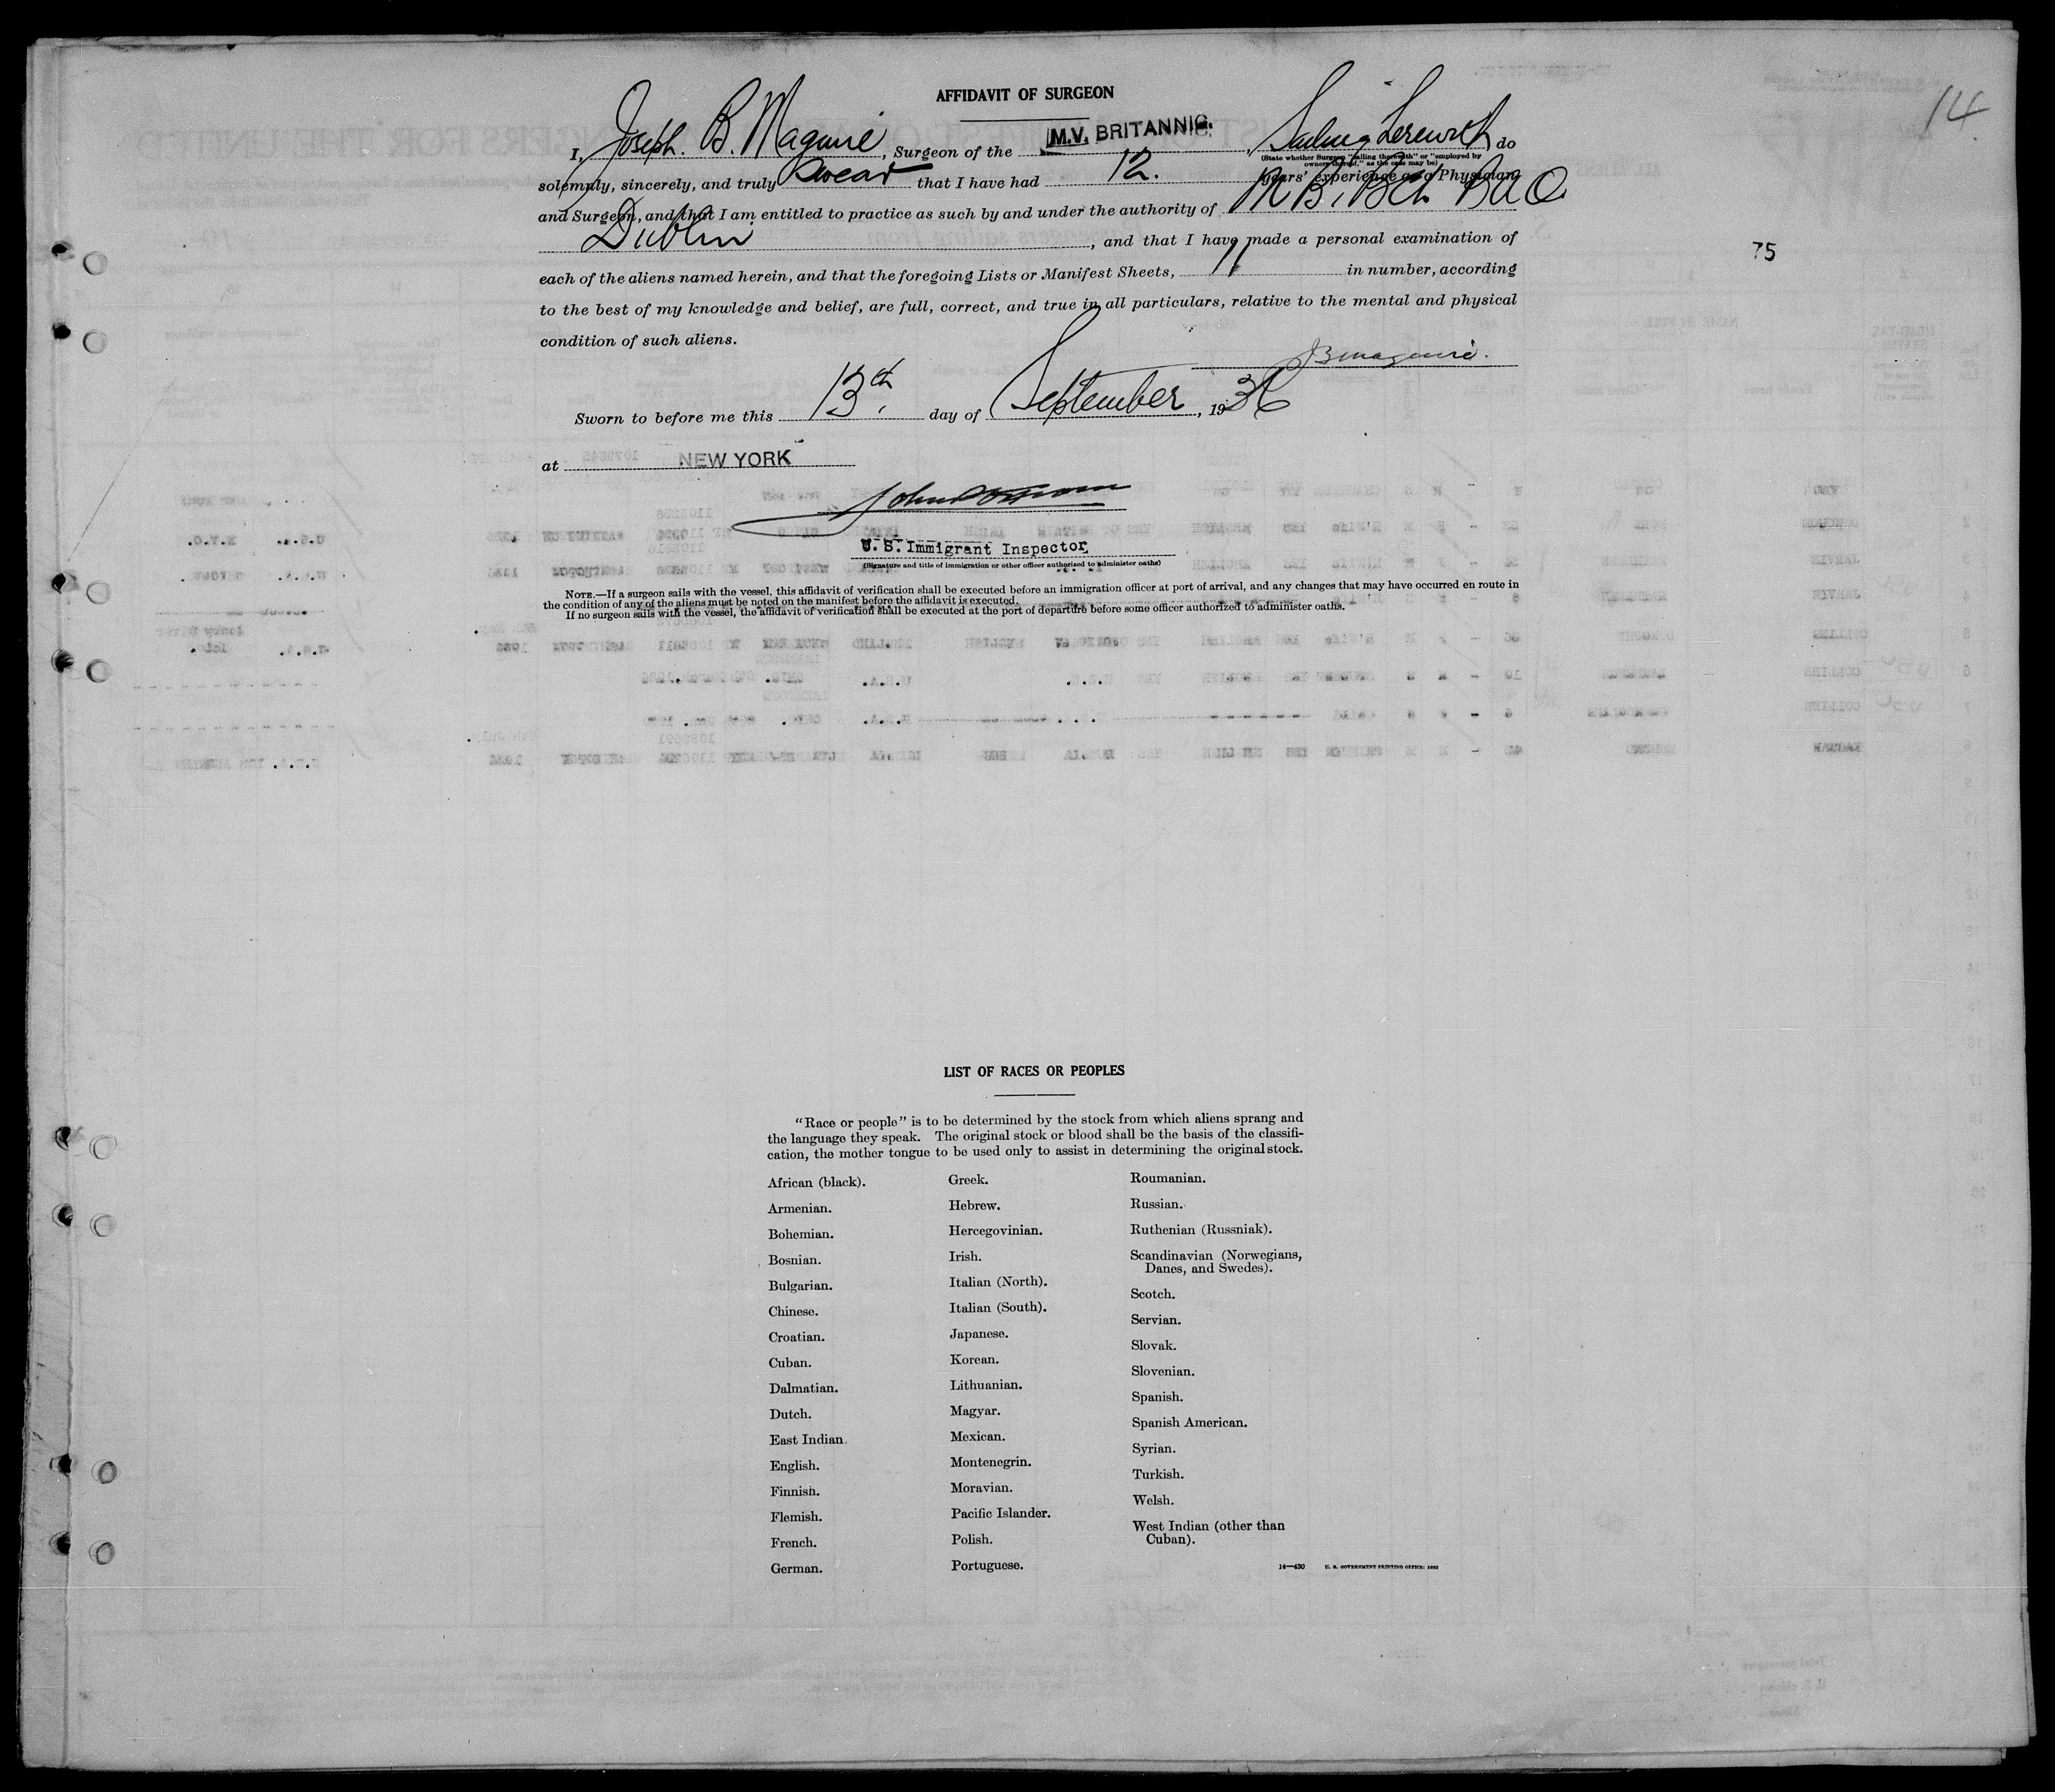 14
AFFIDAVIT OF SURGEON
I, Joseph. B. Maguire, Surgeon of the M.V. BRITANNIC., Sailing Therewith do
(State whether Surgeon "sailing therewith" or "employed by owners thereof," as the case may be)
solemnly, sincerely, and truly Swear that I have had 12. years' experience as a Physician
and Surgeon, and that I am entitled to practice as such by and under the authority of M B, BCh BAO
Dublin, and that I have made a personal examination of
75
each of the aliens named herein, and that the foregoing Lists or Manifest Sheets, 11 in number, according
to the best of my knowledge and belief, are full, correct, and true in all particulars, relative to the mental and physical
condition of such aliens.
JBMaguire.
Sworn to before me this 13th. day of September, 1936
at NEW YORK
U. S. Immigrant Inspector
(Signature and title of immigration or other officer authorized to administer oaths)
NOTE.—If a surgeon sails with the vessel, this affidavit of verification shall be executed before an immigration officer at port of arrival, and any changes that may have occurred en route in
the condition of any of the aliens must be noted on the manifest before the affidavit is executed.
If no surgeon sails with the vessel, the affidavit of verification shall be executed at the port of departure before some officer authorized to administer oaths.
LIST OF RACES OR PEOPLES
"Race or people" is to be determined by the stock from which aliens sprang and
the language they speak. The original stock or blood shall be the basis of the classifi-
cation, the mother tongue to be used only to assist in determining the original stock.
African (black).
Armenian.
Bohemian.
Bosnian.
Bulgarian.
Chinese.
Croatian.
Cuban.
Dalmatian.
Dutch.
East Indian.
English.
Finnish.
Flemish.
French.
German.
Greek.
Hebrew.
Hercegovinian.
Irish.
Italian (North).
Italian (South).
Japanese.
Korean.
Lithuanian.
Magyar.
Mexican.
Montenegrin.
Moravian.
Pacific Islander.
Polish.
Portuguese.
Roumanian.
Russian.
Ruthenian (Russniak).
Scandinavian (Norwegians,
Danes, and Swedes).
Scotch.
Servian.
Slovak.
Slovenian.
Spanish.
Spanish American.
Syrian.
Turkish.
Welsh.
West Indian (other than
Cuban).
14—430 U. S. GOVERNMENT PRINTING OFFICE: